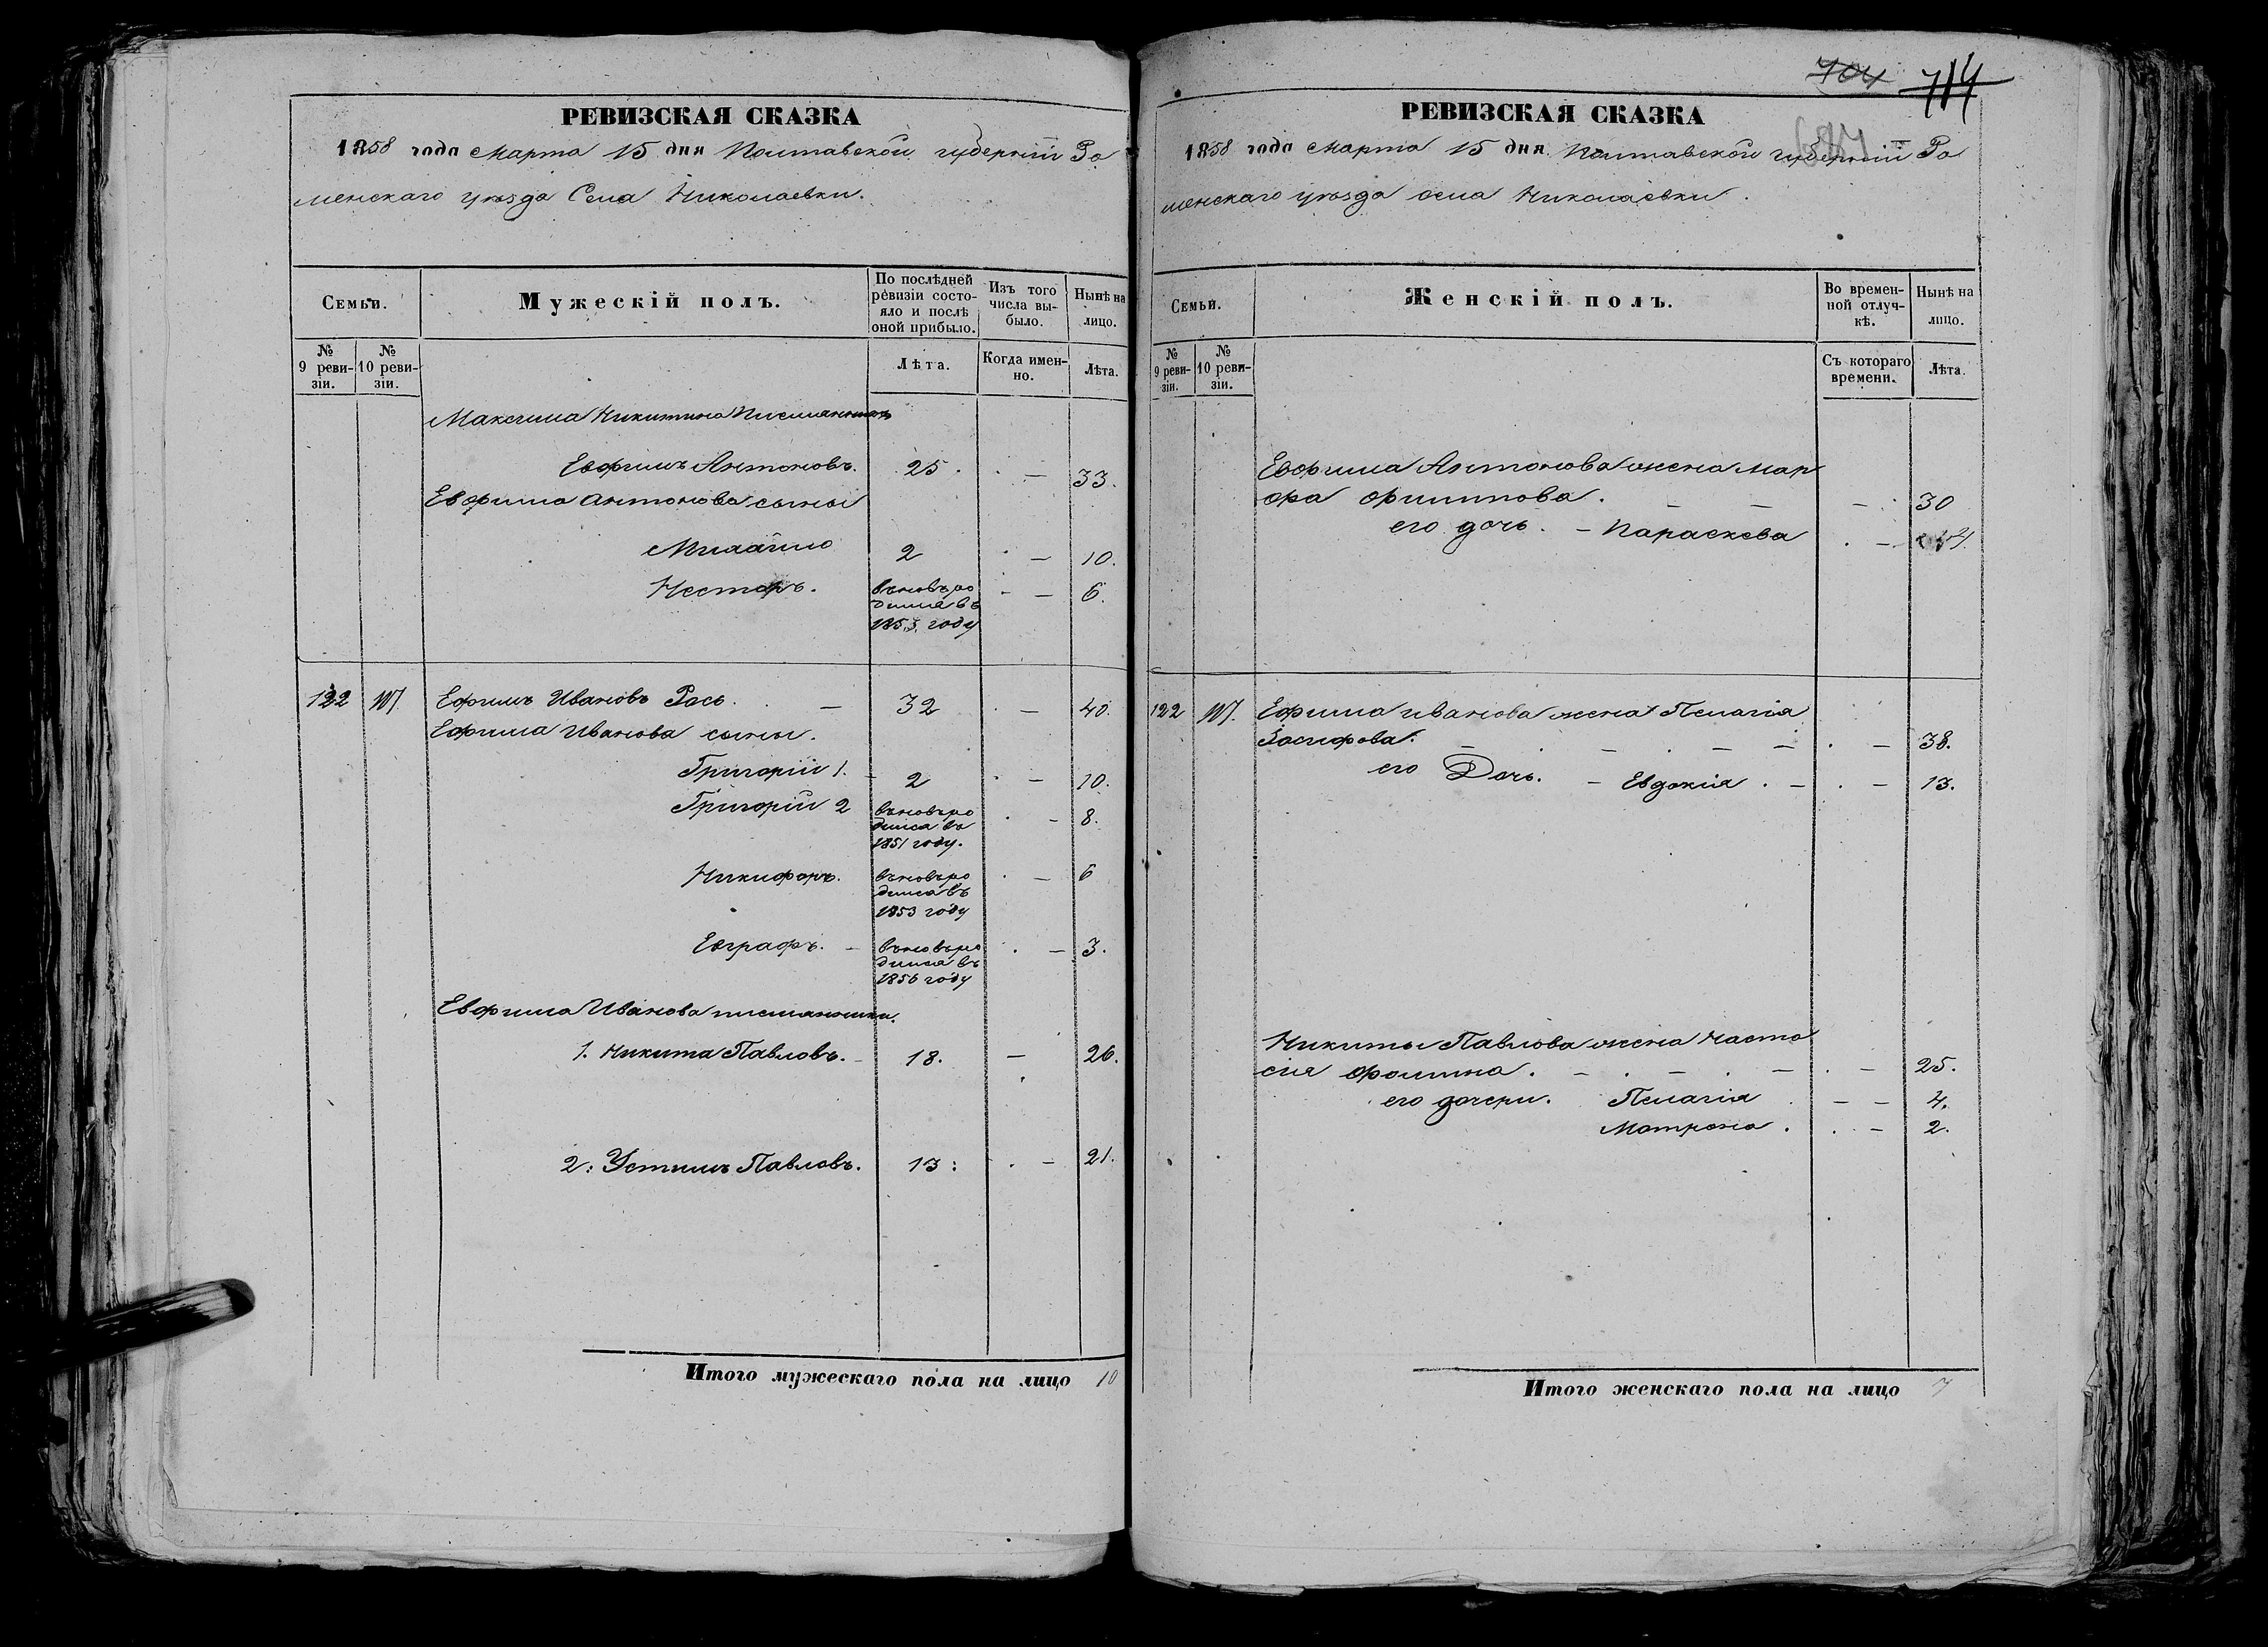 РЕВИЗСКАЯ СКАЗКА
1858 года Марта 15 дня Полтавской губерніи Ро
менскаго уѣзда Села Николаевки.
Семьи.
Мужескій полъ.
По послѣдней ревизіи состояло и послѣ оной прибыло.
Изъ того числа выбыло.
Нынѣ на лицо.
№ 9 ревизіи.
№ 10 ревизіи.
Лѣта.
Когда именно.
Лѣта.
Максима Никитина племянникъ
Евфимъ Антоновъ. 25. — 33.
Евфима Антонова сыны
Михайло 2 — 10.
Несторъ. вновь ро — 6.
дился въ
1853 году
122 107 Ефимъ Ивановъ Рось. — 32 — 40.
Ефима Иванова сыны.
Григорій 1. 2 — 10.
Григорій 2 вновь ро — 8.
дился въ
1851 году.
Никифоръ. вновь ро — 6
дился въ
1853 году
Евграфъ. — вновь ро — 3.
дился въ
1856 году
Евфима Иванова племянники.
1. Никита Павловъ. 18. — 26.
2: Устимъ Павловъ. 13: — 21.
Итого мужескаго пола на лицо 10
704 714
РЕВИЗСКАЯ СКАЗКА
1858 года Марта 15 дня Полтавской губерніи Ро
менскаго уѣзда села Николаевки.
Семьи.
Женскій полъ.
Во временной отлучкѣ.
Нынѣ на лицо.
№ 9 ревизіи.
№ 10 ревизіи.
Съ котораго времени.
Лѣта.
Евфима Антонова жена Мар
фа Филипова. — — — 30
его дочь. — Параскева — 14.
122 107. Ефима Иванова жена Пелагія
Іосифова. — — — — — 38.
его Дочь. — Евдокія. — — 13.
Никиты Павлова жена Наста
сія Фомина. — — — — 25.
его дочери. Пелагія — — 4.
Матрона. — 2.
Итого женскаго пола на лицо 7